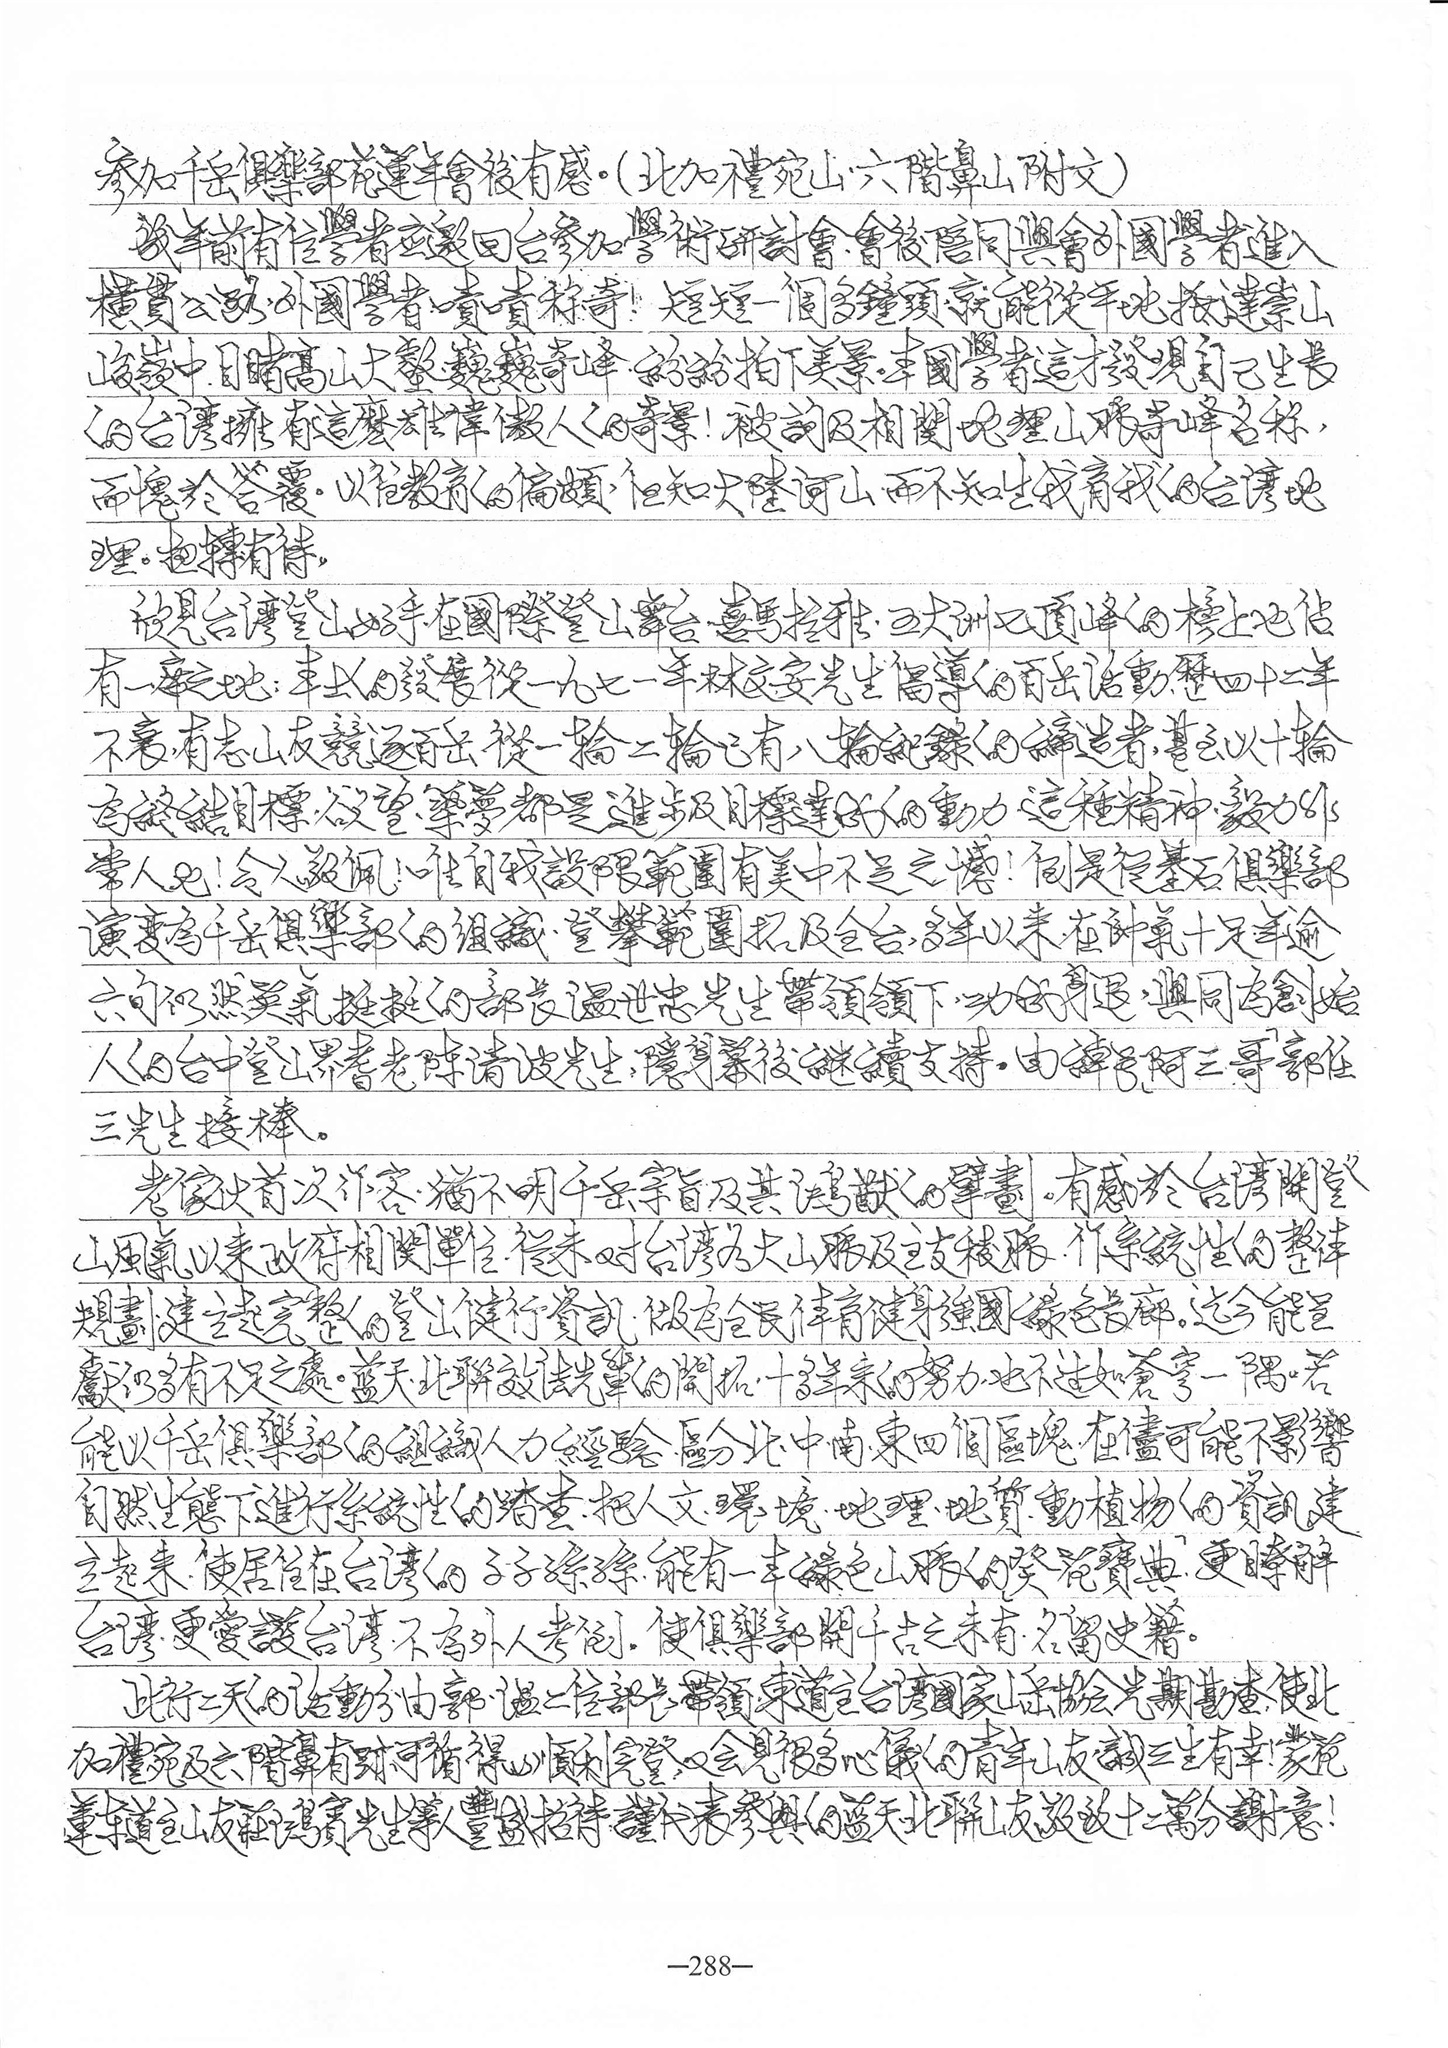 參加千岳俱樂部花蓮年會後有感。(北加禮宛山·六階鼻山附文)
幾年前有位學者應邀回台參加學術研討會·會後陪同與會外國學者進入
橫貫公路·外國學者·嘖嘖称奇!短短一個多鐘頭·就能從平地抵達崇山
峻嶺中·目睹高山大壑·巍巍奇峰·紛紛拍下美景。本國學者這才發現自己生長
的台湾擁有這麼雄偉傲人的奇景!被詢及相関地理山脈奇峰名称,
而愧於答覆。以往教育的偏頗·但知大陸河山而不知生我育我的台湾地
理。扭轉有待。
欣見台湾登山好手·在國際登山舞台·喜馬拉雅·五大洲七頂峰的榜上也佔
有一席之地;本土的發展從一九七一年林文安先生倡導的百岳活動·歷四十二年
不衰·有志山友競逐百岳·從一輪二輪已有八輪紀錄的締造者,甚至以十輪
為終結目標·欲望·築夢都是進步及目標達成的動力·這種精神·毅力非
常人也!令人敬佩!唯自我設限範圍有美中不足之憾!倒是從基石俱樂部
演变為千岳俱樂部的組織·登攀範圍拓及全台,多年以来·在帥氣十足年逾
六旬仍然英氣挺挺的部長溫世忠先生帶領領下·功成身退,與同為創始
人的台中登山界耆老陳清波先生,隱身幕後継續支持。由譚号「阿三哥」郭任
三先生接棒。
老傢伙首次作客·猶不明千岳宗旨及其鴻猷的擘劃。有感於台湾開登
山風氣以来政府相関單位·從未对台湾各大山脈及主支稜脈·作系統性的整体
規劃·建立起完整的登山健行資訊·做為全民体育健身強國綠色長廊。迄今能呈
獻仍多有不足之處。蓝天·北聯效法先輩的開拓·十多年来的努力·也不過如蒼穹一隅。若
能以千岳俱樂部的組織人力経驗·區分北·中·南·東四個區塊·在儘可能不影響
自然生態下進行系統性的踏查·把人文·環境·地理·地質·動植物的資訊建
立起来·使居住在台湾的子子孫孫·能有一本綠色山脈的「葵花寶典」·更瞭解
台湾·更愛護台湾·不為外人考倒。使俱樂部開千古之未有·名留史籍。
此行二天的活動分由郭·溫二位部長帶領·東道主台湾國家山岳協会先期勘查·使北
加禮宛及六階鼻有跡可循得以順利完登,又会見很多心儀的青年山友·誠三生有幸!蒙花
蓮東道主山友莊鴻寶先生等人豐盛招待·謹代表參與的蓝天北聯山友敬致十二萬分謝意!
—288—